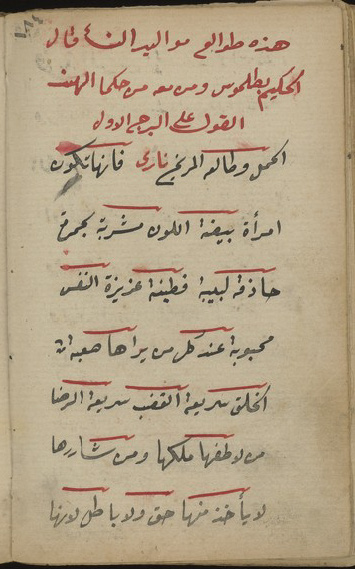 ١٨٤
هذه طوالع مواليد النسا قال
الحكيم بطلموس ومن معه من حكما الهند
القول على البرج الاول
الحمل وطالعه المريخ ناري فانها تكون
امرأة بيضة اللون مشربة بحمرة
حاذقة لبيبة فطينة عزيزة النفس
محبوبة عند كل من يراها صعبة
الخلق سريعة الغضب سريعة الرضا
من لاطفها ملكها ومن شاررها
لا يأخذ منها حق ولا باطل لانها